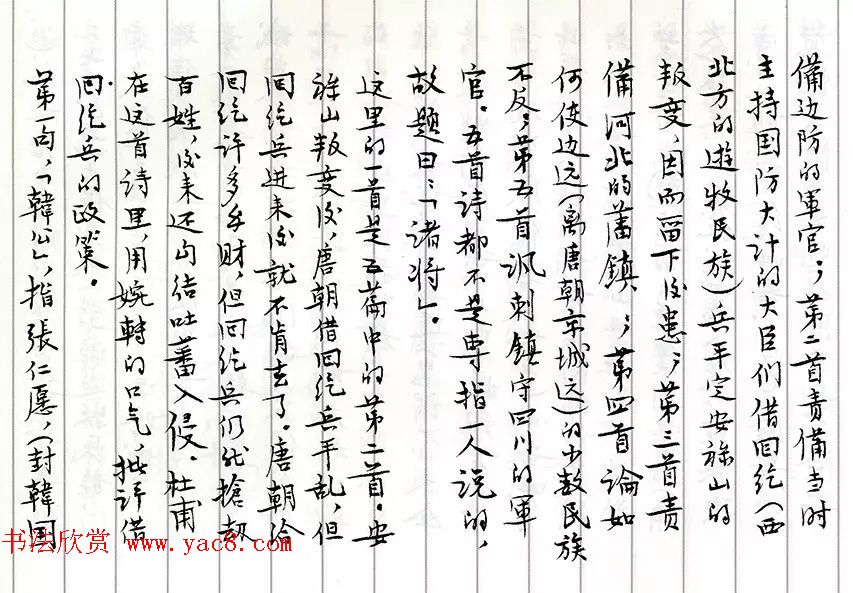 備边防的軍官；第二首責備当时
主持国防大计的大臣们借回紇（西
北方的遊牧民族）兵平定安祿山的
叛变，因而留下後患；第三首責
備河北的藩鎮；第四首論如
何使边远（离唐朝京城远）的少数民族
不反；第五首諷刺鎮守四川的軍
官。五首诗都不是専指一人说的，
故题曰：「诸将」。
这里的一首是五篇中的第二首。安
祿山叛变後，唐朝借回紇兵平乱，但
回紇兵进来後就不肯去了。唐朝给
回紇许多钱财，但回紇兵仍然搶劫
百姓，後来还勾结吐蕃入侵。杜甫
在这首诗里，用婉轉的口气，批评借
回紇兵的政策。
第一句，「韓公」，指張仁愿，（封韓国
书法欣赏 www.yac8.com